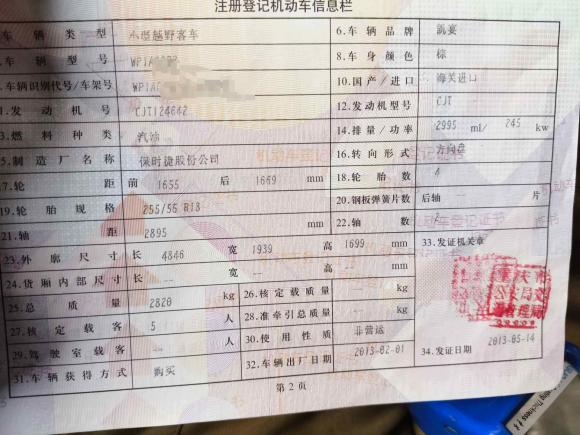 注册登记机动车信息栏
车辆类型 小型越野客车 6.车辆品牌 凯宴
车辆型号 WP1A 8.车身颜色 棕
车辆识别代号/车架号 WP1A 10.国产/进口 海关进口
发动机号 CJT124642 12.发动机型号 CJT
燃料种类 汽油 14.排量/功率 2995 ml/ 245 kw
制造厂名称 保时捷股份公司 16.转向形式 方向盘
17.轮距 前 1655 后 1669 mm 18.轮胎数 4
19.轮胎规格 255/55 R18 20.钢板弹簧片数 后轴 片
21.轴距 2895 mm 22.轴数 2
23.外廓尺寸 长 4846 宽 1939 高 1699 mm 33.发证机关章
24.货厢内部尺寸 长 -- 宽 -- 高 -- mm
25.总质量 2820 kg 26.核定载质量 -- kg
27.核定载客 5 人 28.准牵引总质量 -- kg
29.驾驶室载客 -- 人 30.使用性质 非营运
31.车辆获得方式 购买 32.车辆出厂日期 2013-02-01 34.发证日期 2013-05-14
第2页